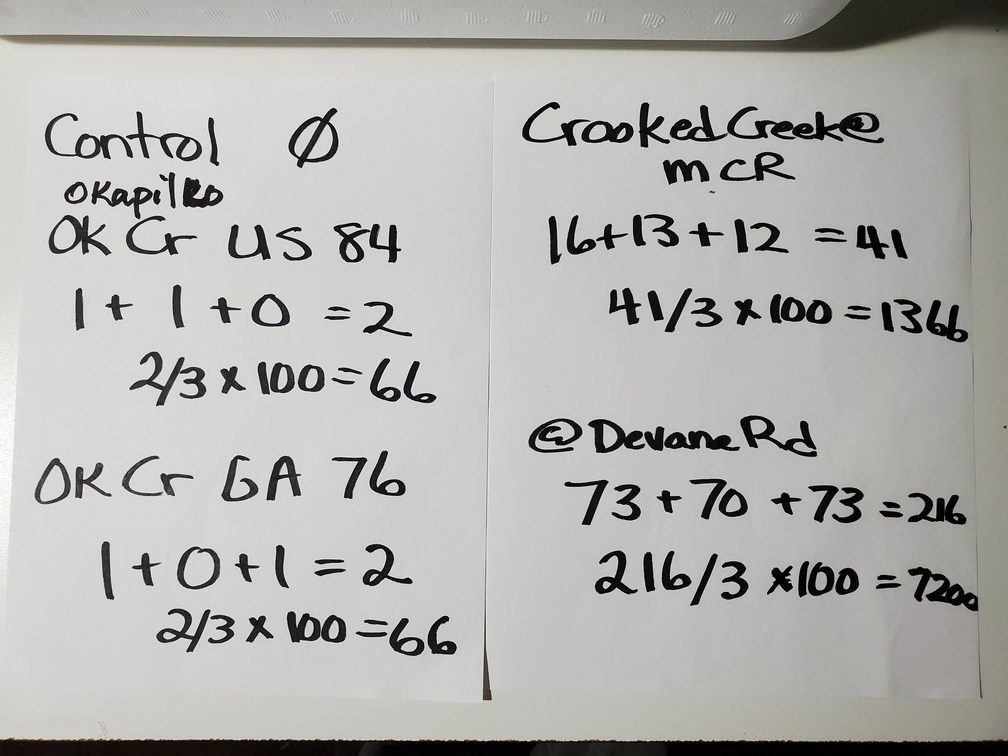 Control Ø
Okapilko
OK Cr US 84
1 + 1 + 0 = 2
2/3 x 100 = 66
OK Cr GA 76
1 + 0 + 1 = 2
2/3 x 100 = 66
Crooked Creek @
mCR
16 + 13 + 12 = 41
41/3 x 100 = 1366
@ Devane Rd
73 + 70 + 73 = 216
216/3 x 100 = 7200